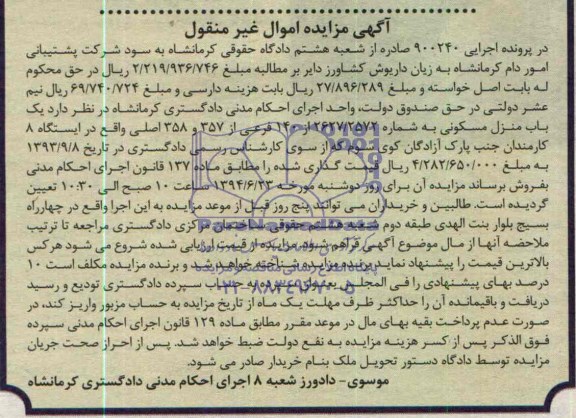 آگهی مزایده اموال غیر منقول
در پرونده اجرایی ۹۰۰۲۴۰ صادره از شعبه هشتم دادگاه حقوقی کرمانشاه به سود شرکت پشتیبانی
امور دام کرمانشاه به زیان داریوش کشاورز دایر بر مطالبه مبلغ ۲/۲۱۹/۹۳۶/۷۴۶ ریال در حق محکوم
له بابت اصل خواسته و مبلغ ۲۷/۸۹۶/۲۸۹ ریال بابت هزینه دارسی و مبلغ ۶۹/۷۴۰/۷۲۴ ریال نیم
عشر دولتی در حق صندوق دولت، واحد اجرای احکام مدنی دادگستری کرمانشاه در نظر دارد یک
باب منزل مسکونی به شماره ۲۶۲۷/۲۵۷۲ از فرعی از ۳۵۷ و ۳۵۸ اصلی واقع در ایستگاه ۸
کارمندان جنب پارک آزادگان کوی سوم که از سوی کارشناس رسمی دادگستری در تاریخ ۱۳۹۳/۹/۸
به مبلغ ۴/۲۸۲/۶۵۰/۰۰۰ ریال قیمت گذاری شده را مطابق ماده ۱۳۷ قانون اجرای احکام مدنی
بفروش برساند مزایده آن برای روز دوشنبه مورخه ۱۳۹۴/۶/۲۳ ساعت ۱۰ صبح الی ۱۰:۳۰ تعیین
گردیده است. طالبین و خریداران می توانند پنج روز قبل از موعد مزایده به این اجرا واقع در چهارراه
بسیج بلوار بنت الهدی طبقه دوم شعبه حقوقی ساختمان مرکزی دادگستری مراجعه تا ترتیب
ملاحضه آنها از مال موضوع آگهی فراهم شود. مزایده از قیمت ارزیابی شده شروع می شود هرکس
بالاترین قیمت را پیشنهاد نماید برنده مزایده شناخته خواهد شد و برنده مزایده مکلف است ۱۰
درصد بهای پیشنهادی را فی المجلس به حساب سپرده دادگستری تودیع و رسید
دریافت و باقیمانده آن را حداکثر ظرف مهلت یک ماه از تاریخ مزایده به حساب مزبور واریز کند، در
صورت عدم پرداخت بقیه بهای مال در موعد مقرر مطابق ماده ۱۲۹ قانون اجرای احکام مدنی سپرده
فوق الذکر پس از کسر هزینه مزایده به نفع دولت ضبط خواهد شد. پس از احراز صحت جریان
مزایده توسط دادگاه دستور تحویل ملک بنام خریدار صادر می شود.
موسوی- دادورز شعبه ۸ اجرای احکام مدنی دادگستری کرمانشاه